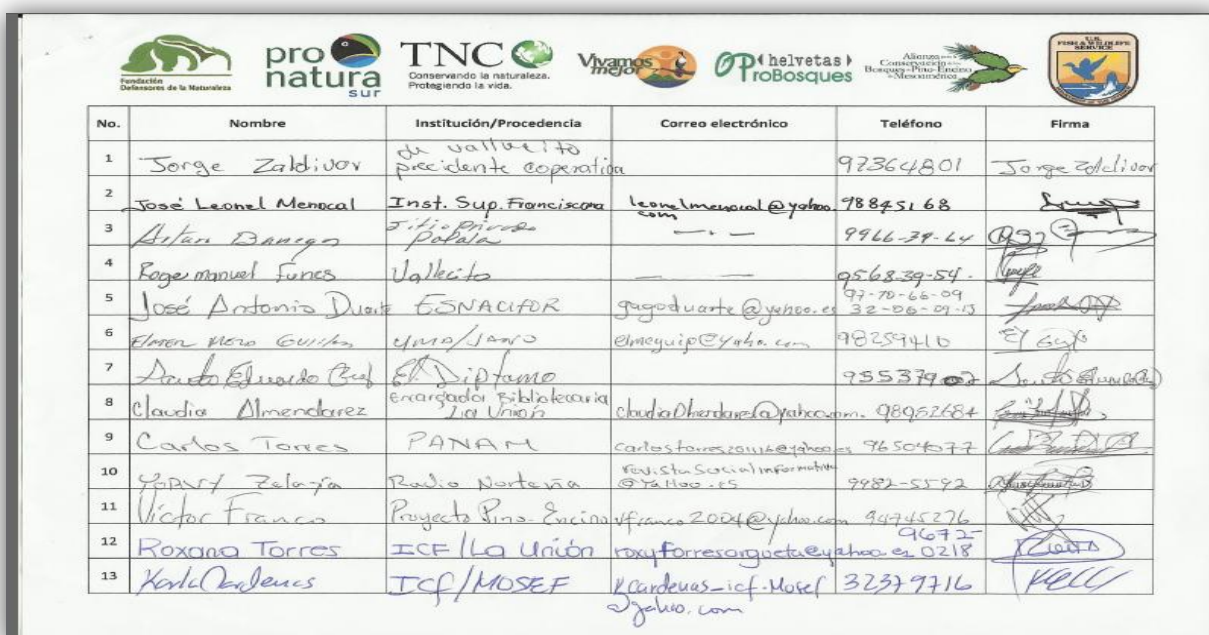 Fundación
Defensores de la Naturaleza
pro
natura
sur
TNC
Conservando la naturaleza.
Protegiendo la vida.
Vivamos
mejor
helvetas
ProBosques
Alianza para la
Conservación de los
Bosques de Pino-Encino
de Mesoamérica
U.S.
FISH & WILDLIFE
SERVICE
No. Nombre Institución/Procedencia Correo electrónico Teléfono Firma
1 Jorge Zaldivar de vallecito precidente coperativa 97364801 Jorge Zaldivar
2 José Leonel Menocal Inst. Sup. Franciscana leonelmenocal@yahoo.com 98845168
3 Sitio Privado 9966-39-64
4 Roge manuel Funes Vallecito 9568-39-54
5 José Antonio Duarte ESNACIFOR gagoduarte@yahoo.es 97-70-66-09 32-06-09-13
6 UMA/JANO elmeguip@yaho.com 98259410
7 Eduardo El Diptamo
8 Claudia Almendarez Encargada Bibliotecaria La Unión 98952684
9 Carlos Torres PANAM 96504077
10 Zelaya Radio Norteña revista social informativa @yaHoo.es 9982-5592
11 Victor Franco Proyecto Pino-Encino vfranco2004@yahoo.com 94745276
12 Roxana Torres ICF/La Unión roxytorresargueta@yahoo.es 9672-0218
13 Karla Cardenas ICF/MOSEF Kcardenas-icf-Mosef @yahoo.com 32379716